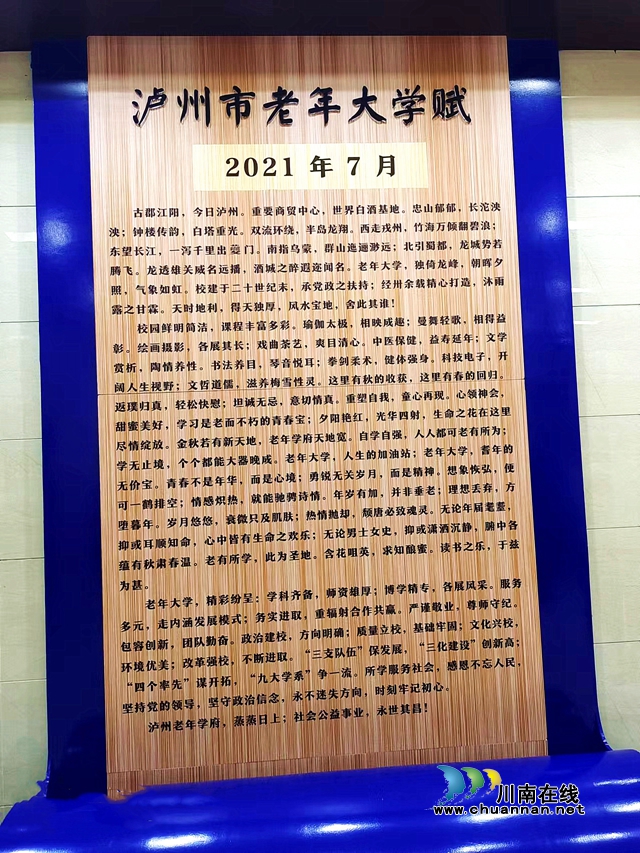 泸州市老年大学赋
2021 年 7 月
古郡江阳，今日泸州。重要商贸中心，世界白酒基地。忠山郁郁，长沱泱
泱；钟楼传韵，白塔重光。双流环绕，半岛龙翔。西走戎州，竹海万倾翻碧浪；
东望长江，一泻千里出夔门。南指乌蒙，群山迤逦渺远；北引蜀都，龙城势若
腾飞。龙透雄关威名远播，酒城之醉遐迩闻名。老年大学，独倚龙峰，朝晖夕
照，气象如虹。校建于二十世纪末，承党政之扶持；经卅余载精心打造，沐雨
露之甘霖。天时地利，得天独厚，风水宝地，舍此其谁！
校园鲜明简洁，课程丰富多彩。瑜伽太极，相映成趣；曼舞轻歌，相得益
彰。绘画摄影，各展其长；戏曲茶艺，爽目清心。中医保健，益寿延年；文学
赏析，陶情养性。书法养目，琴音悦耳；拳剑柔术，健体强身。科技电子，开
阔人生视野；文哲道儒，滋养梅雪性灵。这里有秋的收获，这里有春的回归。
返璞归真，轻松快慰；坦诚无忌，意切情真。重塑自我，童心再现。心领神会，
甜蜜美好，学习是老而不朽的青春宝；夕阳艳红，光华四射，生命之花在这里
尽情绽放。金秋若有新天地，老年学府天地宽。自学自强，人人都可老有所为；
学无止境，个个都能大器晚成。老年大学，人生的加油站；老年大学，耆年的
无价宝。青春不是年华，而是心境；勇锐无关岁月，而是精神。想象恢弘，便
可一鹤排空；情感炽热，就能驰骋诗情。年岁有加，并非垂老；理想丢弃，方
堕暮年。岁月悠悠，衰微只及肌肤；热情抛却，颓唐必致魂灵。无论年届耄耋，
抑或耳顺知命，心中皆有生命之欢乐；无论男士女史，抑或潇洒沉静，腑中各
蕴有秋肃春温。老有所学，此为圣地。含花咀英，求知酿蜜。读书之乐，于兹
为甚。
老年大学，精彩纷呈：学科齐备，师资雄厚；博学精专，各展风采。服务
多元，走内涵发展模式；务实进取，重辐射合作共赢。严谨敬业，尊师守纪。
包容创新，团队勤奋。政治建校，方向明确；质量立校，基础牢固；文化兴校，
环境优美；改革强校，不断进取。“三支队伍”保发展，“三化建设”创新高；
“四个率先”谋开拓，“九大学系”争一流。所学服务社会，感恩不忘人民，
坚持党的领导，坚守政治信念，永不迷失方向，时刻牢记初心。
泸州老年学府，蒸蒸日上；社会公益事业，永世其昌！
川南在线
www.chuannan.net